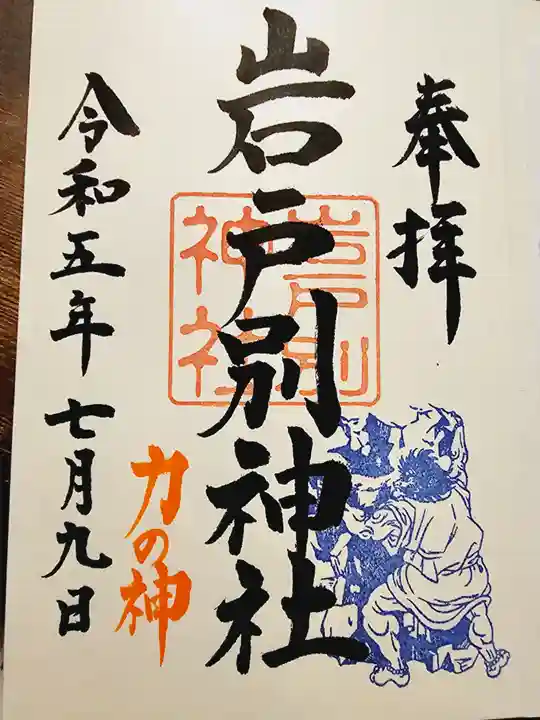 奉拝
岩戸別神社
岩戸別
神社
力の神
令和五年七月九日